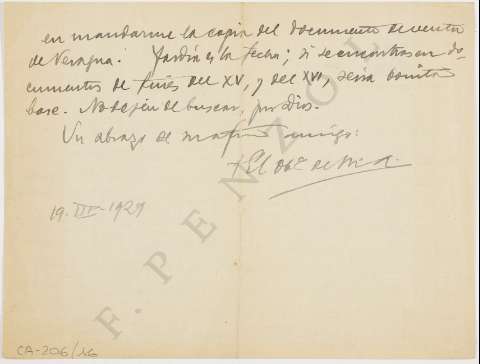 en mandarme la copia del documento de venta
de Veragua. Tardía es la fecha; si se encontrasen do-
cumentos de fines del XV, y del XVI, sería bonita
base. No dejen de buscar, por Dios.
Un abrazo de su amigo:
† El Obº de M-A.
19-III-1929
F. PENZOL
CA-206/16